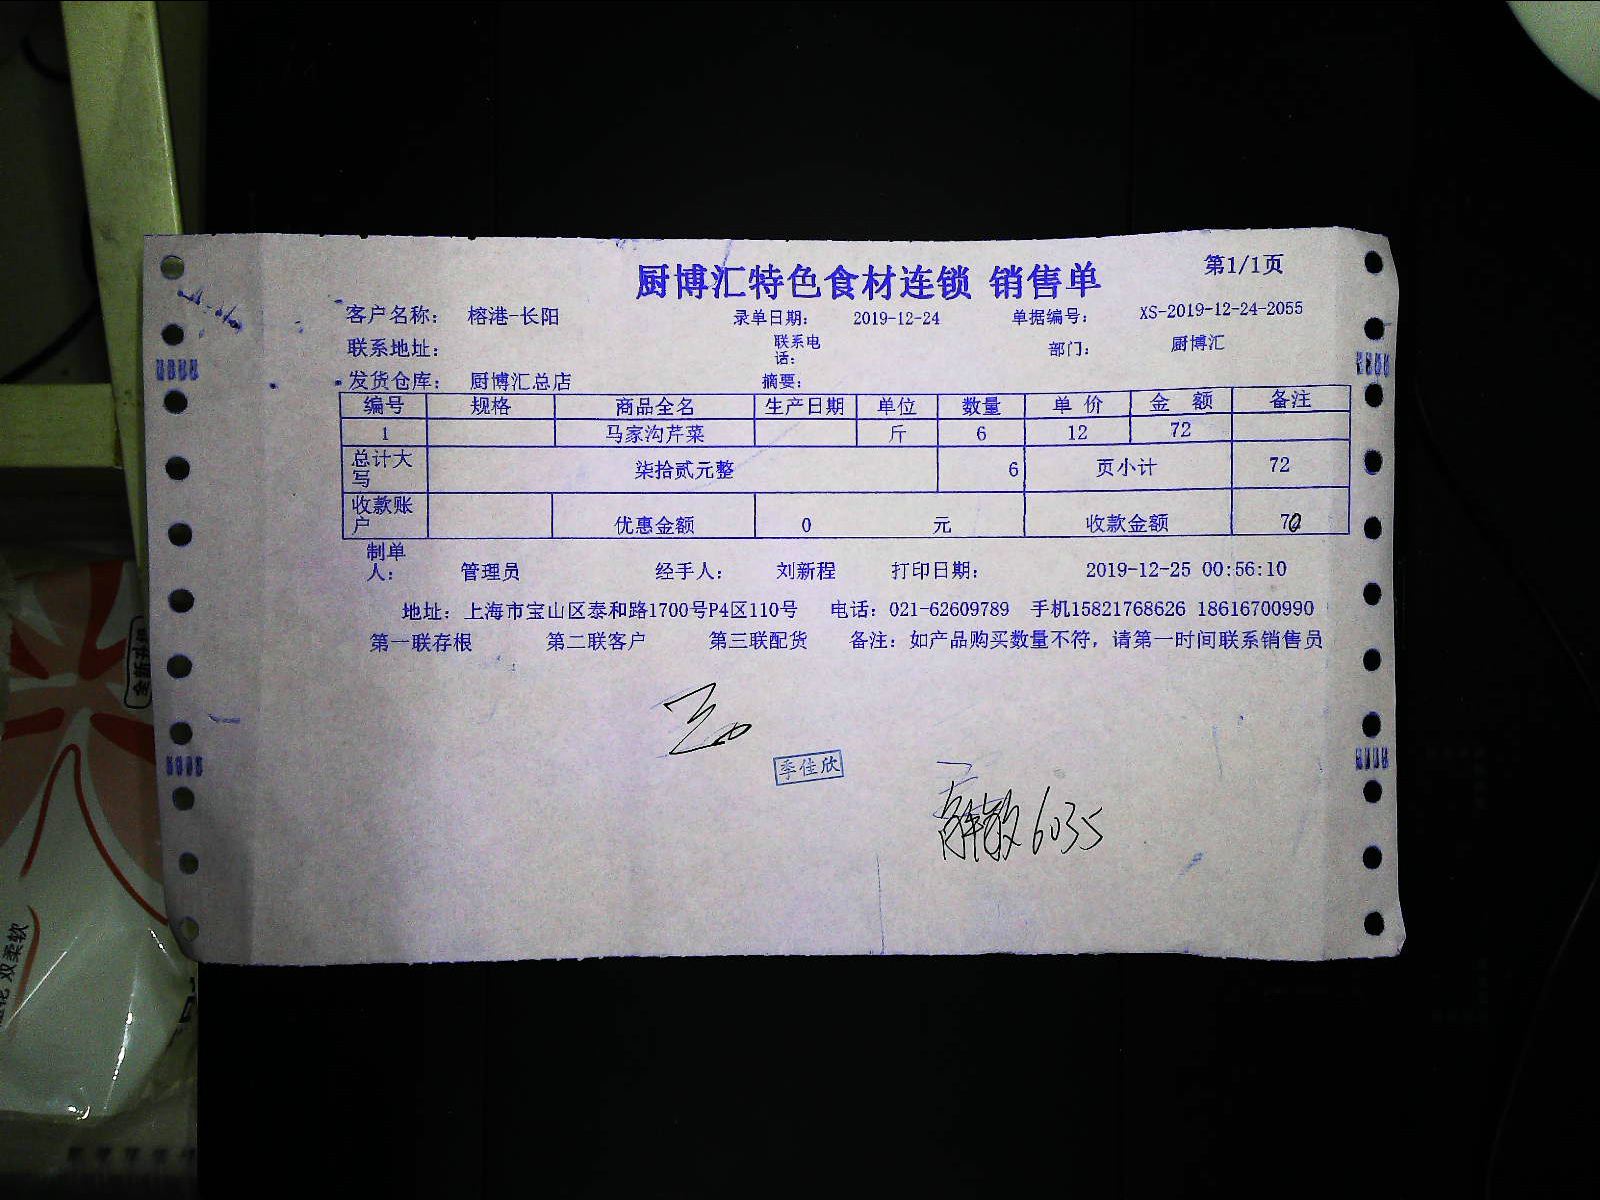 厨博汇特色食材连锁 销售单
第1/1页
客户名称： 榕港-长阳 录单日期： 2019-12-24 单据编号： XS-2019-12-24-2055
联系地址： 联系电话： 部门： 厨博汇
发货仓库： 厨博汇总店 摘要：
编号 规格 商品全名 生产日期 单位 数量 单 价 金 额 备注
1 马家沟芹菜 斤 6 12 72
总计大写 柒拾贰元整 6 页小计 72
收款账户 优惠金额 0 元 收款金额
制单人： 管理员 经手人： 刘新程 打印日期： 2019-12-25 00:56:10
地址：上海市宝山区泰和路1700号P4区110号 电话：021-62609789 手机15821768626 18616700990
第一联存根 第二联客户 第三联配货 备注：如产品购买数量不符，请第一时间联系销售员
季佳欣
6035
全新升级
双柔软